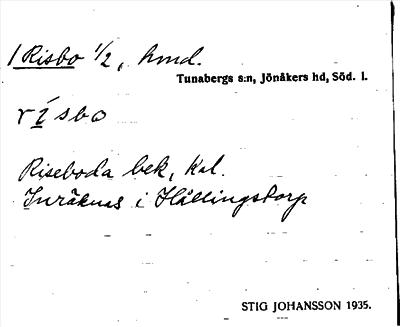 1 Risbo 1/2, hmd.
Tunabergs s:n, Jönåkers hd, Söd. l.
rísbo
Riseboda bek, Kal.
Inräknas i Hållingstorp
STIG JOHANSSON 1935.